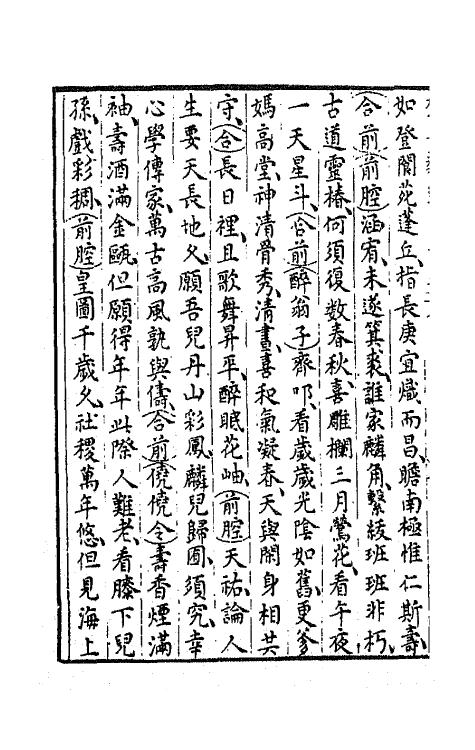 如登閬苑蓬丘指長庚宜熾而昌瞻南極惟仁斯壽
合前前腔涵宥未遂箕裘誰家麟角繫綾班班非朽
古道靈椿何須復數春秋喜雕欄三月鶯花看午夜
一天星斗合前醉翁子齊叩看歲歲光陰如舊更爹
媽高堂神清骨秀清晝喜和氣凝春天與閑身相共
守合長日裡且歌舞昇平醉眠花岫前腔天祐論人
生要天長地久願吾兒丹山彩鳳麟兒歸囿須究幸
心學傳家萬古高風孰與儔合前僥僥令壽香煙滿
袖壽酒滿金甌但願得年年此際人難老看膝下兒
孫戲彩稠前腔皇圖千歲久社稷萬年悠但見海上